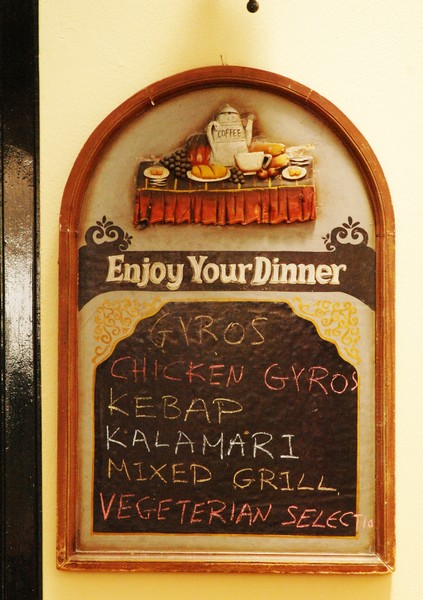 COFFEE
Enjoy Your Dinner
GYROS
CHICKEN GYROS
KEBAP
KALAMARI
MIXED GRILL
VEGETERIAN SELECTIO